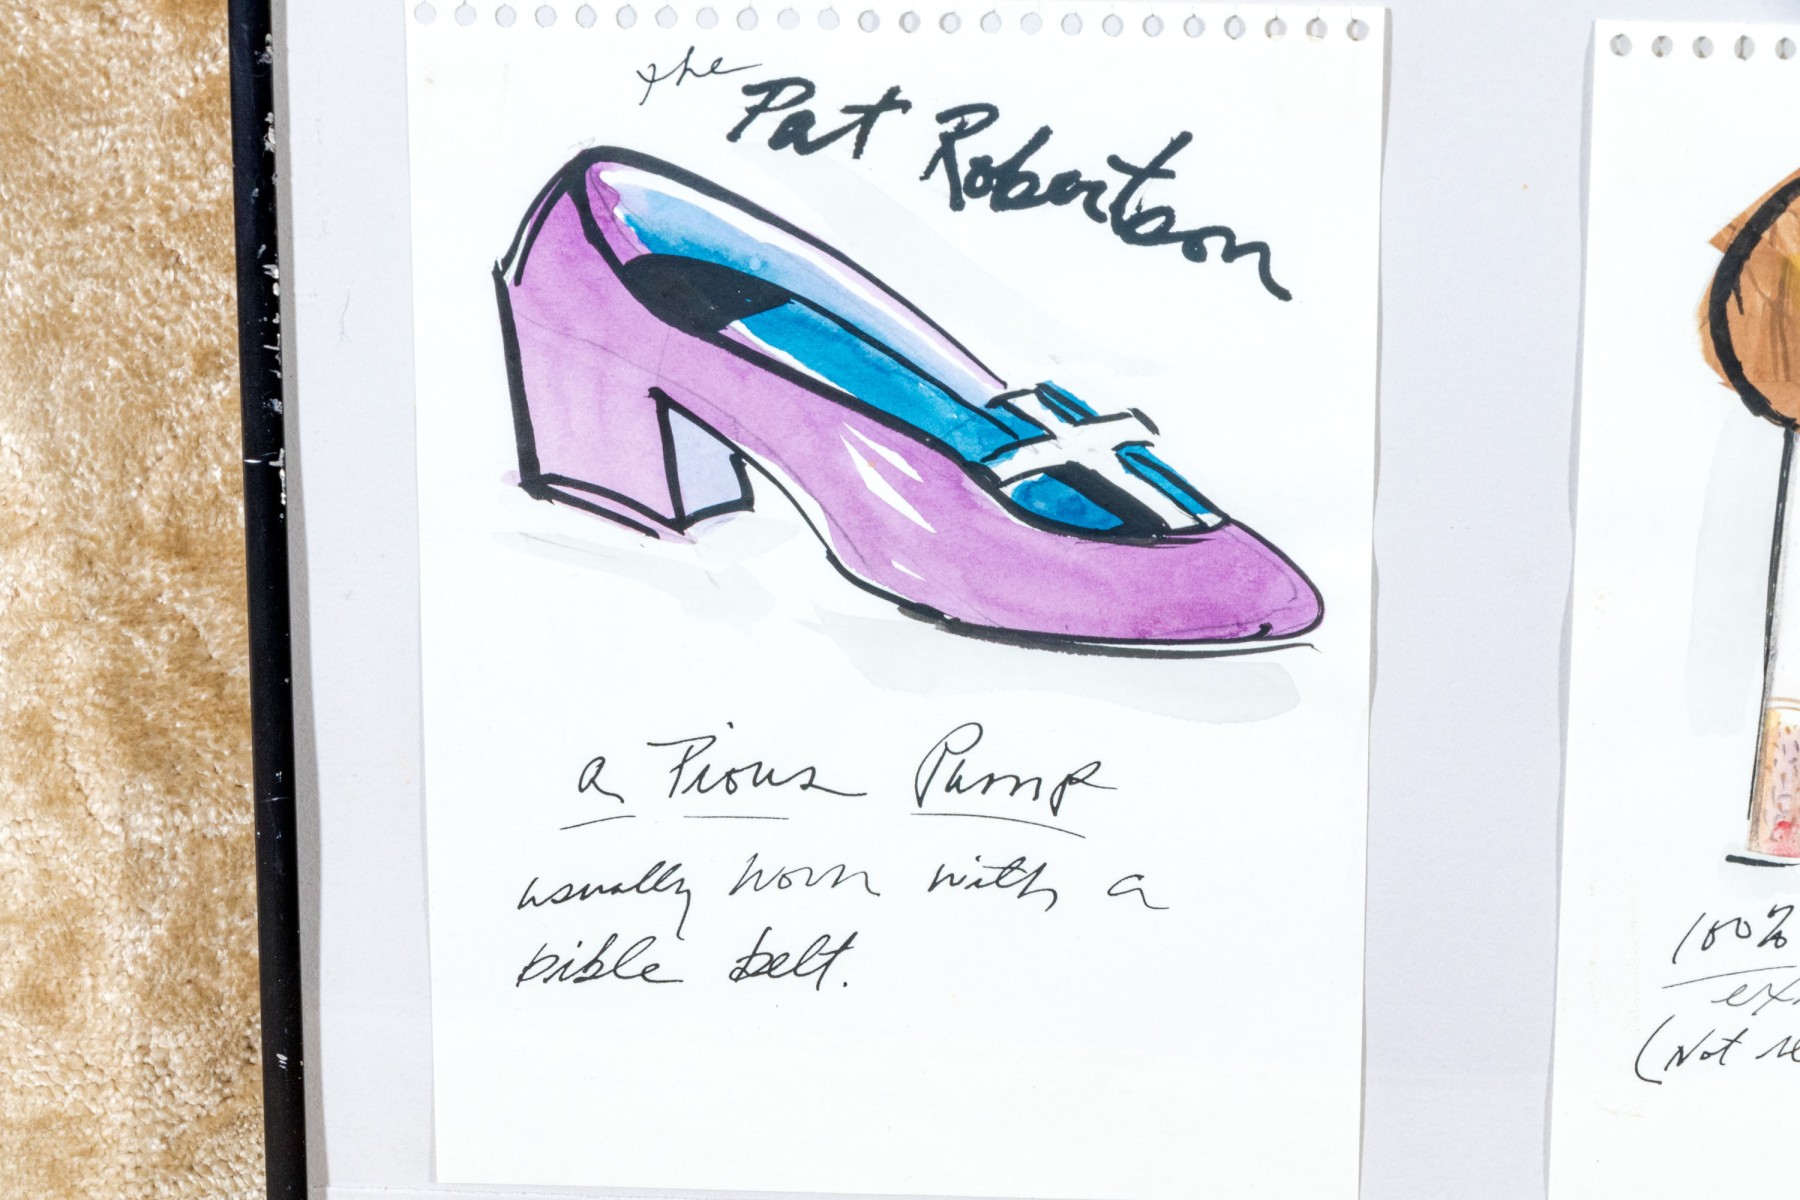 the
Pat Robertson
a Pious Pump
usually worn with a
bible belt.
100%
(Not